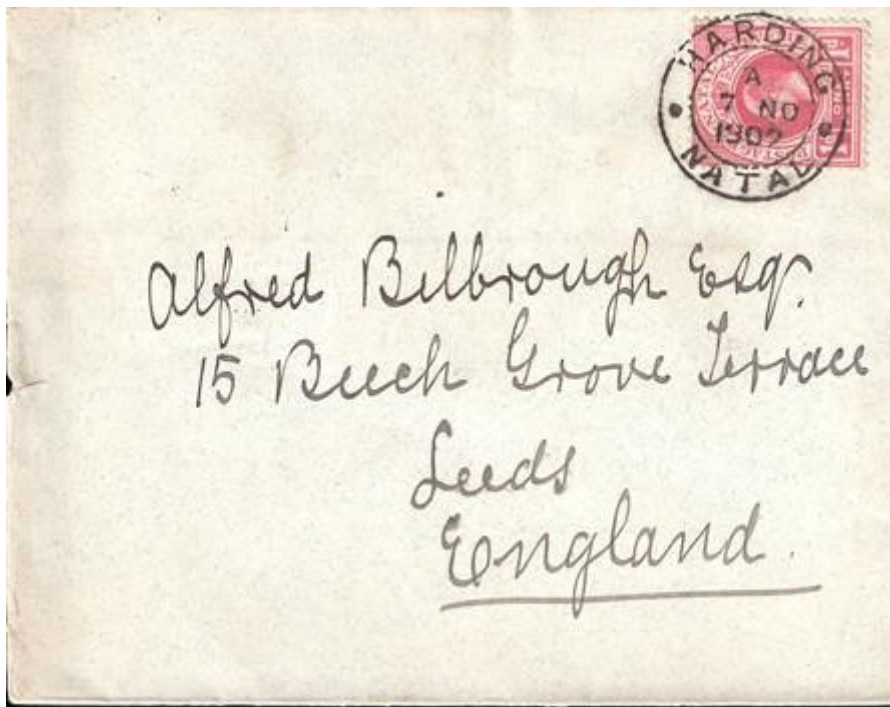 HARDING
A
7 NO
1902
NATAL
NATAL
Alfred Bilbrough Esqr.
15 Beech Grove Terrace
Leeds
England.